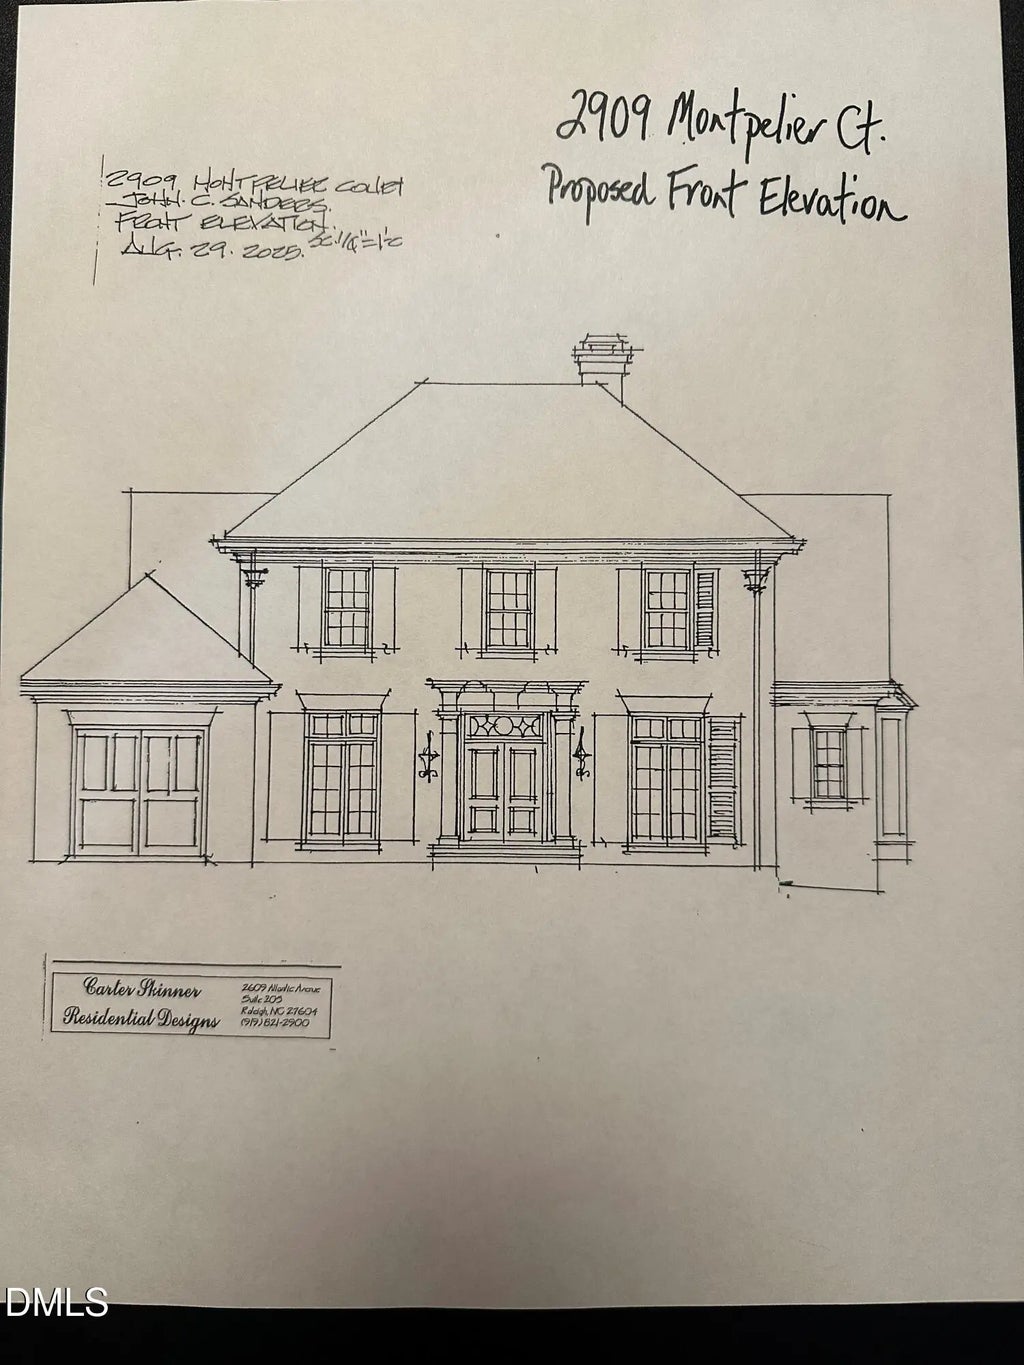 2909 Montpelier Ct.
Proposed Front Elevation
2909 MONTPELIER COURT
JOHN C. SANDERS.
FRONT ELEVATION.
AUG. 29. 2025. SC. 1/4"=1'0
Carter Skinner
Residential Designs
2609 Atlantic Avenue
Suite 205
Raleigh, NC 27604
(919) 821-2900
DMLS